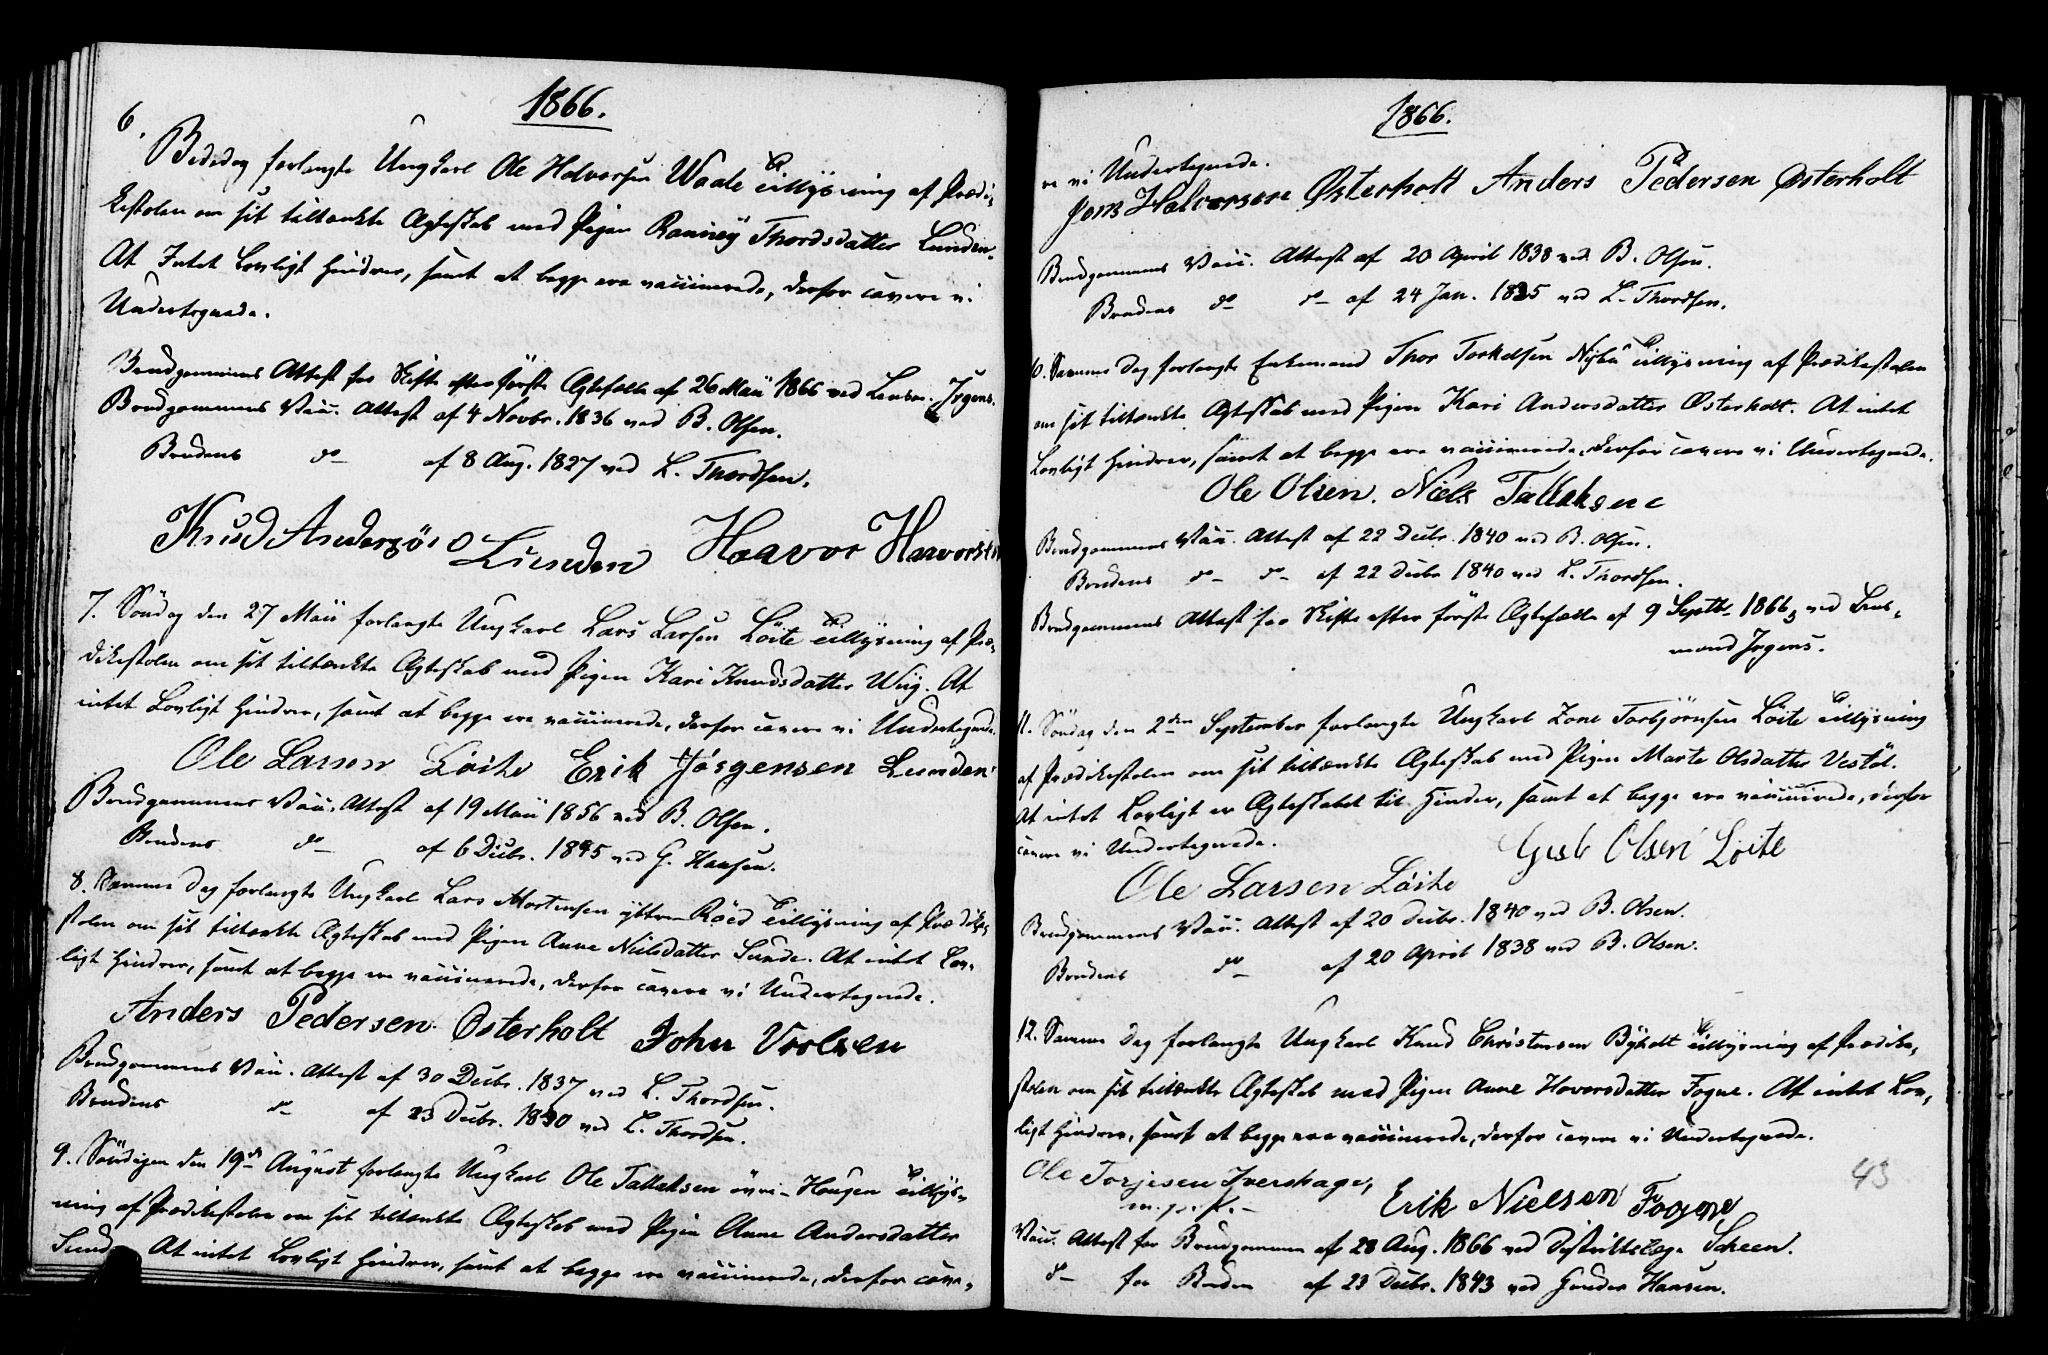 1866.
6.
Bededag forlangte Ungkarl Ole Halvorsen Waale Tillysning af Prædi-
kestolen om sit tiltænkte Ægteskab med Pigen Ranneÿ Thordsdatter Lunden.
At Intet Lovligt hindrer, samt at begge ere vaccinerede, derfor cavere vi
Undertegnede.
Brudgommens Attest for Skifte efter første Ægtefælle af 26 Maii 1866 ved Lensm. Jrgens.
Brudgommens Vacc. Attest af 4 Novbr. 1836 ved B. Olsen.
Brudens do af 8 Aug. 1827 ved L. Thordsen.
Knud Andersøn Lunden Haavor Havorsen
7. Söndag den 27 Maii forlangte Ungkarl Lars Larsen Löite Tillysning af Præ-
dikestolen om sit tiltænkte Ægteskab med Pigen Kari Knudsdatter Wiig. At
intet Lovligt hindrer, samt at begge ere vaccinerede, derfor cavere vi Undertegnede.
Ole Larsen Löite Erik Jörgensen Lunden
Brudgommens Vacc. Attest af 19 Maii 1856 ved B. Olsen.
Brudens do af 6 Decbr. 1845 ved G. Hansen.
8. Samme Dag forlangte Ungkarl Lars Mortensen ÿttre Röed Tillysning af Prædike-
stolen om sit tiltænkte Ægteskab med Pigen Anne Neilsdatter Sunde. At intet Lov-
ligt hindrer, samt at begge ere vaccinerede, derfor cavere vi Undertegnede.
Anders Pedersen Østerholt John
Brudgommens Vacc. Attest af 30 Decbr. 1837 ved L. Thordsen.
Brudens do af 23 Decbr. 1840 ved L. Thordsen.
9. Söndagen den 19de August forlangte Ungkarl Ole Tallaksen övre-Hougen Tillÿs-
ning af Prædikestolen om sit tiltænkte Ægteskab med Pigen Anne Andersdatter
Sunde At intet Lovligt hindrer, samt at begge ere vaccinerede, derfor cave-
1866.
re vi Undertegnede.
Jens Halvorsen Østerholt Anders Pedersen Østerholt
Brudgommens Vacc. Attest af 20 April 1838 ved B. Olsen.
Brudens do do af 24 Jan. 1835 ved L. Thordsen.
10. Samme Dag forlangte Enkemand Thor Torkelsen Nÿbu Tillysning af Prædikestolen
om sit tiltænkte Ægteskab med Pigen Kari Andersdatter Østerholt. At intet
Lovligt hindrer, samt at begge ere vaccinerede, derfor cavere vi Undertegnede.
Ole Olsen. Niels Tallaksene
Brudgommens Vacc. Attest af 22 Decbr. 1840 ved B. Olsen.
Brudens do do af 22 Decbr 1840 ved L. Thordsen.
Brudgommens Attest for Skifte efter første Ægtefælle af 9 Septbr. 1866, ved Lens-
mand Jrgens.
11. Söndag den 2den September forlangte Ungkarl Zone Torbjörnsen Löite Tillÿsning
af Prædikestolen om sit tiltænkte Ægteskab med Pigen Marte Olsdatter Vestöl.
At intet Lovligt er Ægteskabet til Hinder, samt at begge ere vaccinerede, derfor
cavere vi Undertegnede.
Ole Larsen Löite Olsen Löite
Brudgommens Vacc. Attest af 20 Decbr. 1840 ved B. Olsen.
Brudens do af 20 April 1838 ved B. Olsen.
12. Samme Dag forlangte Ungkarl Knud Christensen Bÿholt Tillÿsning af Prædike-
stolen om sit tiltænkte Ægteskab med Pigen Anne Hoversdatter Fogne. At intet Lov-
ligt hindrer, samt at begge ere vaccinerede, derfor cavere vi Undertegnede.
Ole Torjesen Ivershage,
m.p.P.
Erik Nielsen Fogne
43
Vacc. Attest for Brudgommen af 28 Aug. 1866 ved Distriktslæge Scheen.
do for Bruden af 23 Decbr. 1843 ved Gunder Hansen.